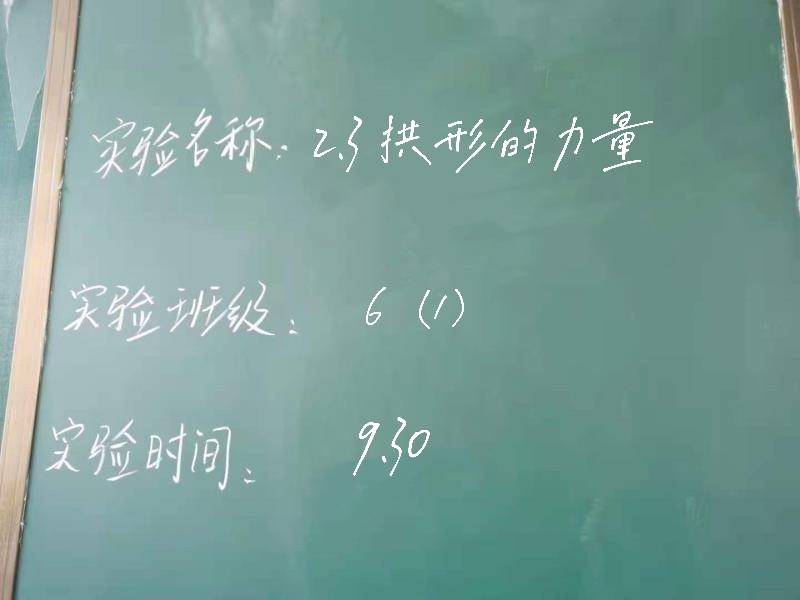 实验名称：2.3拱形的力量
实验班级：6（1）
实验时间：9.30